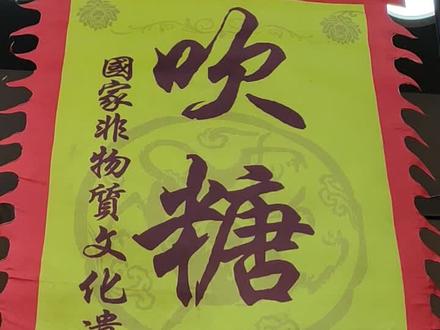 吹糖
國家非物質文化遺